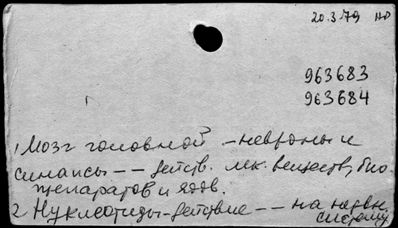 20.3.79 НО
963683
963684
1 Мозг головной – невроны и
синапсы – – действ. лек. веществ, био-
препаратов и ядов.
2 Нуклеотиды – действие – – на нервн.
систему